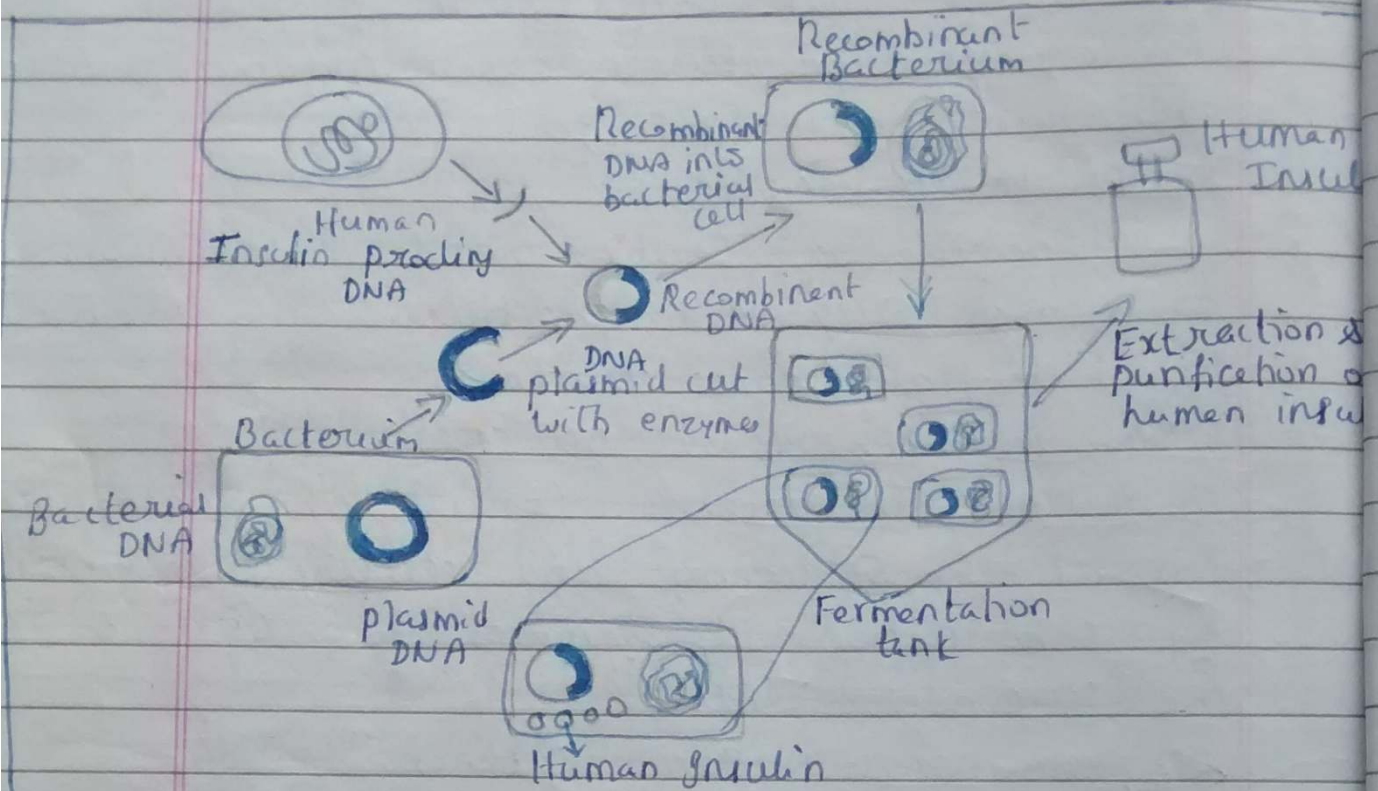 Recombinant
Bacterium
Recombinant
DNA into
bacterial
cell
Human
Insul
Human
Insulin prodiny
DNA
Recombinent
DNA
DNA
plasmid cut
with enzymes
Extraction &
purification o
human insu
Bacterium
Bacterial
DNA
plasmid
DNA
Fermentation
tank
Human Insulin